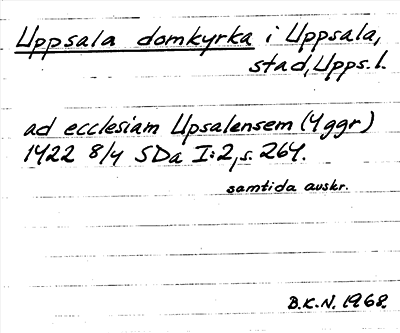 Uppsala domkyrka i Uppsala,
stad, Upps. l.
ad ecclesiam Upsalensem (4 ggr)
1422 8/4 SDa I:2, s. 264.
samtida avskr.
B.K.N. 1968